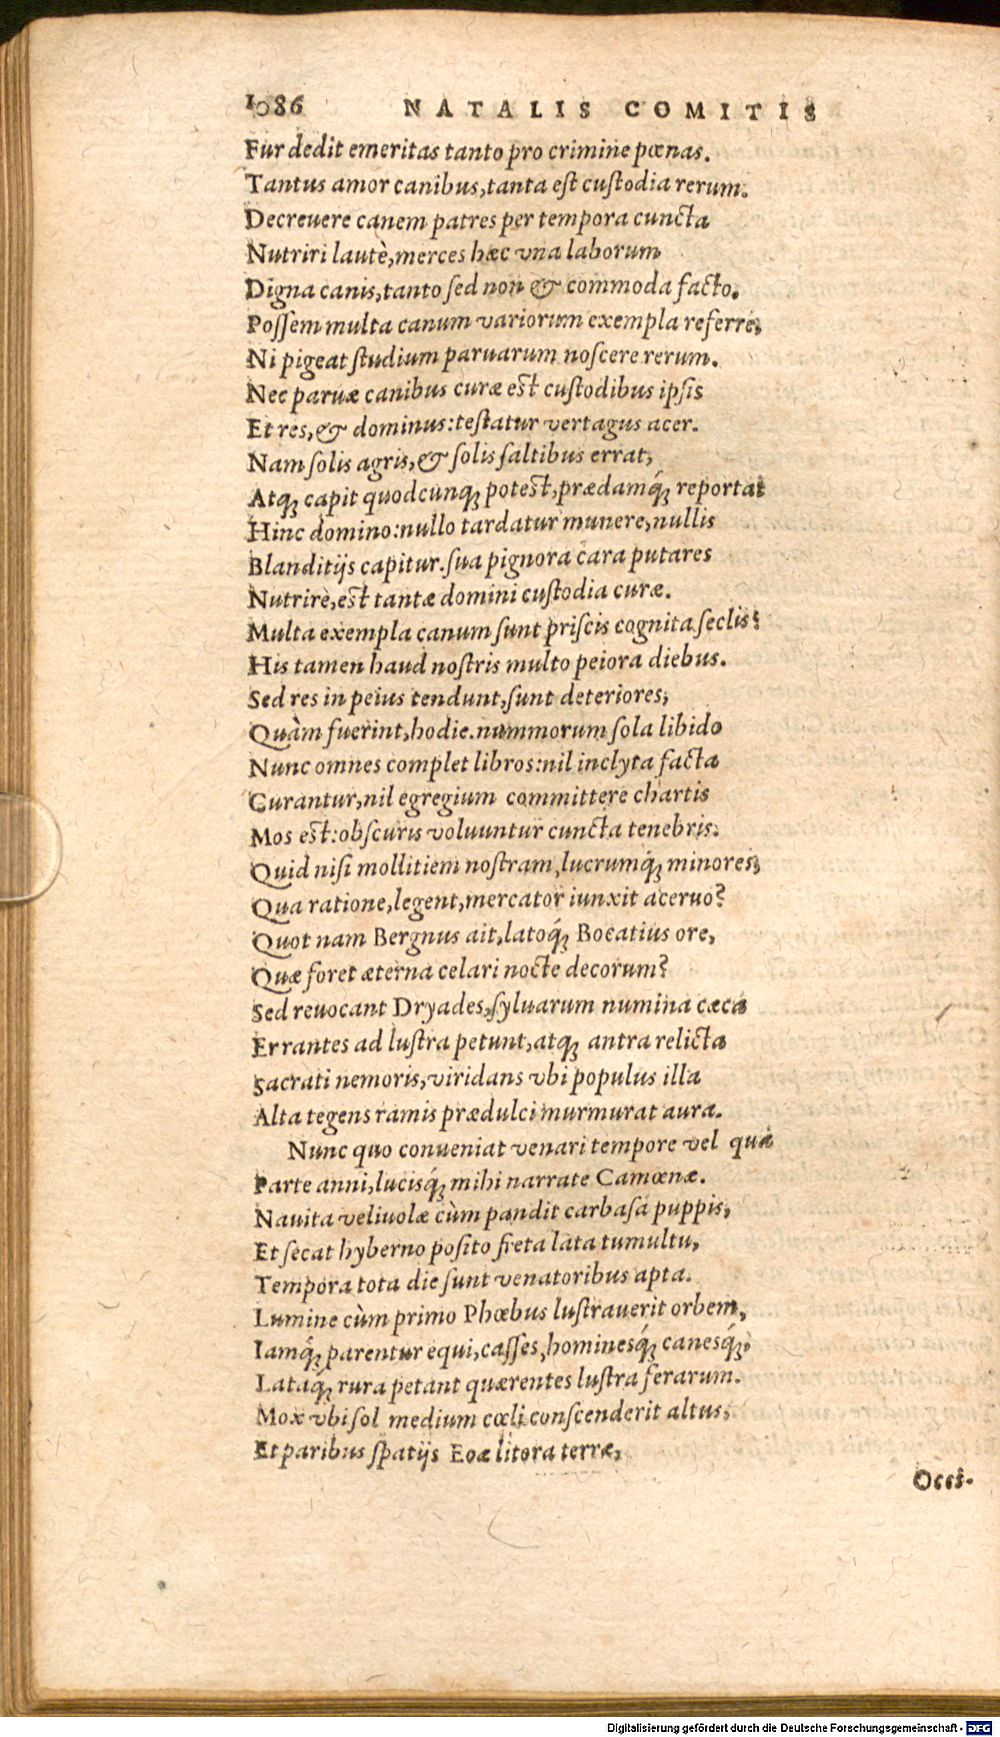 1086 NATALIS COMITIS
Fur dedit emeritas tanto pro crimine pœnas.
Tantus amor canibus, tanta est custodia rerum.
Decreuere canem patres per tempora cuncta
Nutriri lautè, merces hæc vna laborum
Digna canis, tanto sed non & commoda facto.
Possem multa canum variorum exempla referre,
Ni pigeat studium paruarum noscere rerum.
Nec paruæ canibus curæ est custodibus ipsis
Et res, & dominus: testatur vertagus acer.
Nam solis agris, & solis saltibus errat,
Atq; capit quodcunq; potest, prædamq́; reportat
Hinc domino: nullo tardatur munere, nullis
Blanditijs capitur. sua pignora cara putares
Nutrirè, est tantæ domini custodia curæ.
Multa exempla canum sunt priscis cognita seclis:
His tamen haud nostris multo peiora diebus.
Sed res in peius tendunt, sunt deteriores,
Quàm fuerint, hodie. nummorum sola libido
Nunc omnes complet libros: nil inclyta facta
Curantur, nil egregium committere chartis
Mos est: obscuris voluuntur cuncta tenebris.
Quid nisi mollitiem nostram, lucrumq́; minores,
Qua ratione, legent, mercator iunxit aceruo?
Quot nam Bergnus ait, latoq́; Bocatius ore,
Quæ foret æterna celari nocte decorum?
Sed reuocant Dryades, syluarum numina cæca
Errantes ad lustra petunt, atq; antra relicta
Sacrati nemoris, viridans vbi populus illa
Alta tegens ramis prædulci murmurat aura.
Nunc quo conueniat venari tempore vel qua
Parte anni, lucisq́; mihi narrate Camœnæ.
Nauita veliuolæ cùm pandit carbasa puppis,
Et secat hyberno posito freta lata tumultu,
Tempora tota die sunt venatoribus apta.
Lumine cùm primo Phœbus lustrauerit orbem,
Iamq́; parentur equi, casses, hominesq́; canesq́;,
Lataq́; rura petant quærentes lustra ferarum.
Mox vbi sol medium cœli conscenderit altus,
Et paribus spatijs Eoæ litora terræ,
Occi-
Digitalisierung gefördert durch die Deutsche Forschungsgemeinschaft - DFG